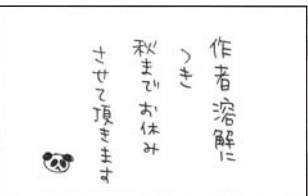 作者溶解に
つき
秋までお休み
させて頂きます